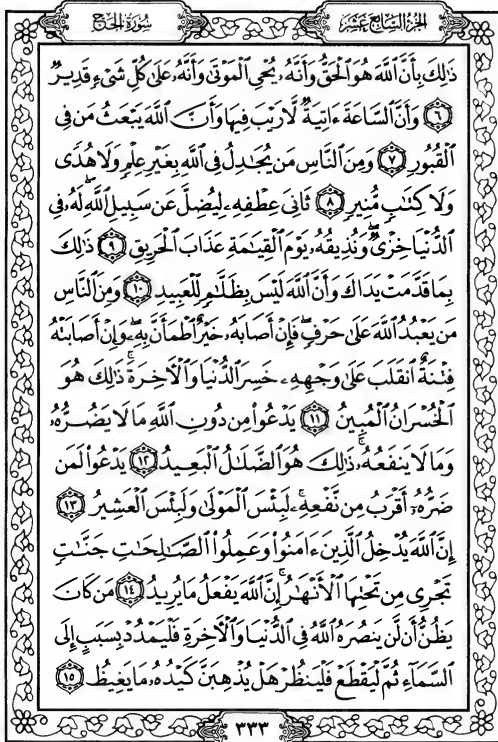 الجزء السابع عشر
سورة الحج
ذَٰلِكَ بِأَنَّ ٱللَّهَ هُوَ ٱلْحَقُّ وَأَنَّهُۥ يُحْيِ ٱلْمَوْتَىٰ وَأَنَّهُۥ عَلَىٰ كُلِّ شَىْءٍ قَدِيرٌ
٦ وَأَنَّ ٱلسَّاعَةَ ءَاتِيَةٌ لَّا رَيْبَ فِيهَا وَأَنَّ ٱللَّهَ يَبْعَثُ مَن فِى
ٱلْقُبُورِ ٧ وَمِنَ ٱلنَّاسِ مَن يُجَٰدِلُ فِى ٱللَّهِ بِغَيْرِ عِلْمٍ وَلَا هُدًى
وَلَا كِتَٰبٍ مُّنِيرٍ ٨ ثَانِىَ عِطْفِهِۦ لِيُضِلَّ عَن سَبِيلِ ٱللَّهِ ۖ لَهُۥ فِى
ٱلدُّنْيَا خِزْىٌ ۖ وَنُذِيقُهُۥ يَوْمَ ٱلْقِيَٰمَةِ عَذَابَ ٱلْحَرِيقِ ٩ ذَٰلِكَ
بِمَا قَدَّمَتْ يَدَاكَ وَأَنَّ ٱللَّهَ لَيْسَ بِظَلَّٰمٍ لِّلْعَبِيدِ ١٠ وَمِنَ ٱلنَّاسِ
مَن يَعْبُدُ ٱللَّهَ عَلَىٰ حَرْفٍ ۖ فَإِنْ أَصَابَهُۥ خَيْرٌ ٱطْمَأَنَّ بِهِۦ ۖ وَإِنْ أَصَابَتْهُ
فِتْنَةٌ ٱنقَلَبَ عَلَىٰ وَجْهِهِۦ خَسِرَ ٱلدُّنْيَا وَٱلْءَاخِرَةَ ۚ ذَٰلِكَ هُوَ
ٱلْخُسْرَانُ ٱلْمُبِينُ ١١ يَدْعُوا۟ مِن دُونِ ٱللَّهِ مَا لَا يَضُرُّهُۥ
وَمَا لَا يَنفَعُهُۥ ۚ ذَٰلِكَ هُوَ ٱلضَّلَٰلُ ٱلْبَعِيدُ ١٢ يَدْعُوا۟ لَمَن
ضَرُّهُۥٓ أَقْرَبُ مِن نَّفْعِهِۦ ۚ لَبِئْسَ ٱلْمَوْلَىٰ وَلَبِئْسَ ٱلْعَشِيرُ ١٣
إِنَّ ٱللَّهَ يُدْخِلُ ٱلَّذِينَ ءَامَنُوا۟ وَعَمِلُوا۟ ٱلصَّٰلِحَٰتِ جَنَّٰتٍ
تَجْرِى مِن تَحْتِهَا ٱلْأَنْهَٰرُ ۚ إِنَّ ٱللَّهَ يَفْعَلُ مَا يُرِيدُ ١٤ مَن كَانَ
يَظُنُّ أَن لَّن يَنصُرَهُ ٱللَّهُ فِى ٱلدُّنْيَا وَٱلْءَاخِرَةِ فَلْيَمْدُدْ بِسَبَبٍ إِلَى
ٱلسَّمَآءِ ثُمَّ لْيَقْطَعْ فَلْيَنظُرْ هَلْ يُذْهِبَنَّ كَيْدُهُۥ مَا يَغِيظُ ١٥
٣٣٣